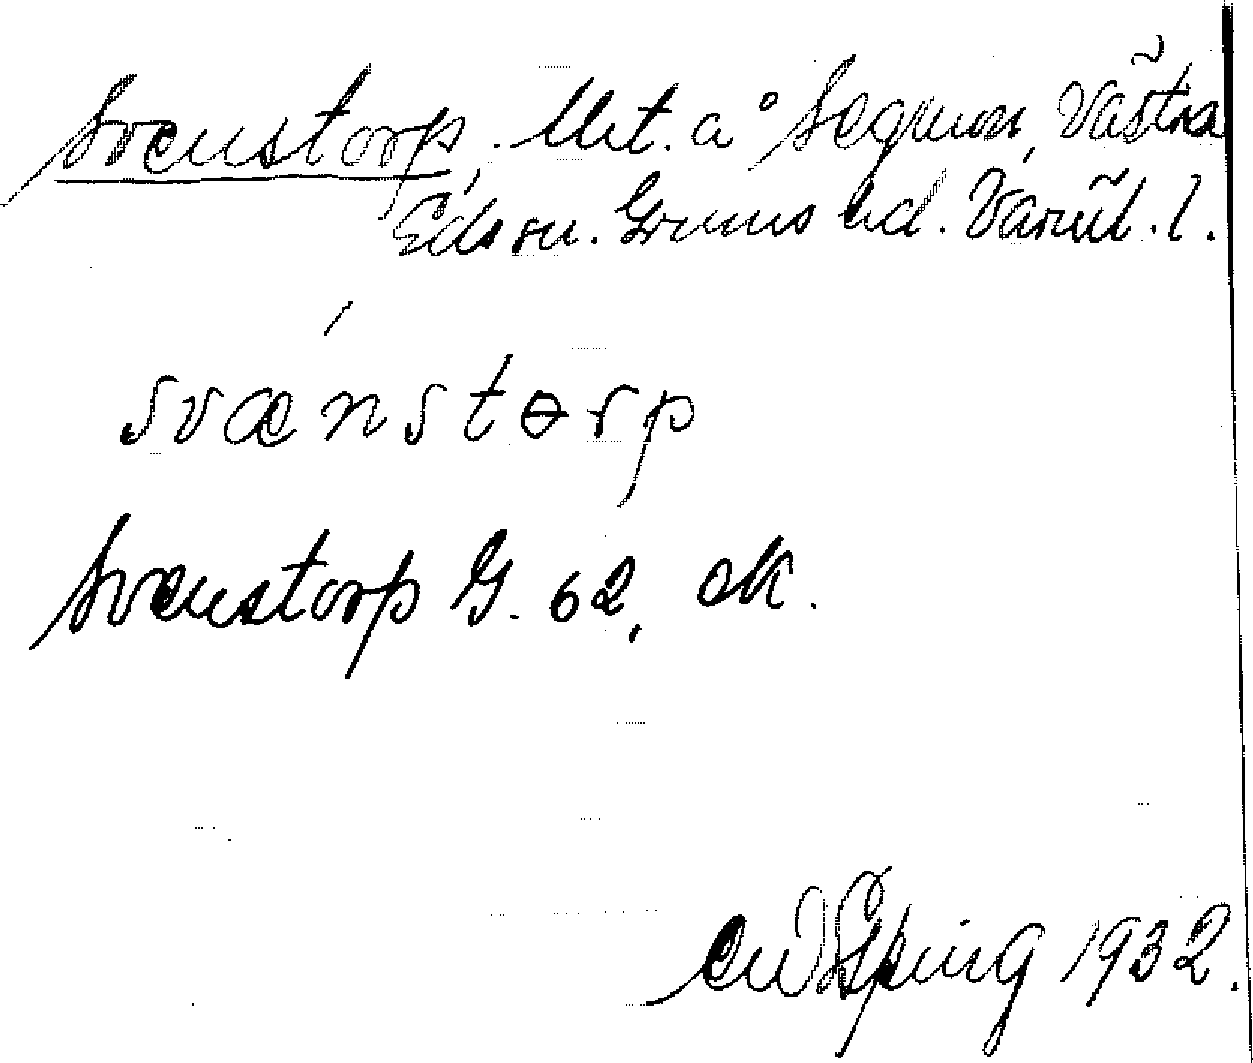 Svenstorp. Utt. a° Segmon, Västra
Eds sn. Grums hd. Värml. l.
svænstɵrp
Svenstorp G. 62, ek.
1932.